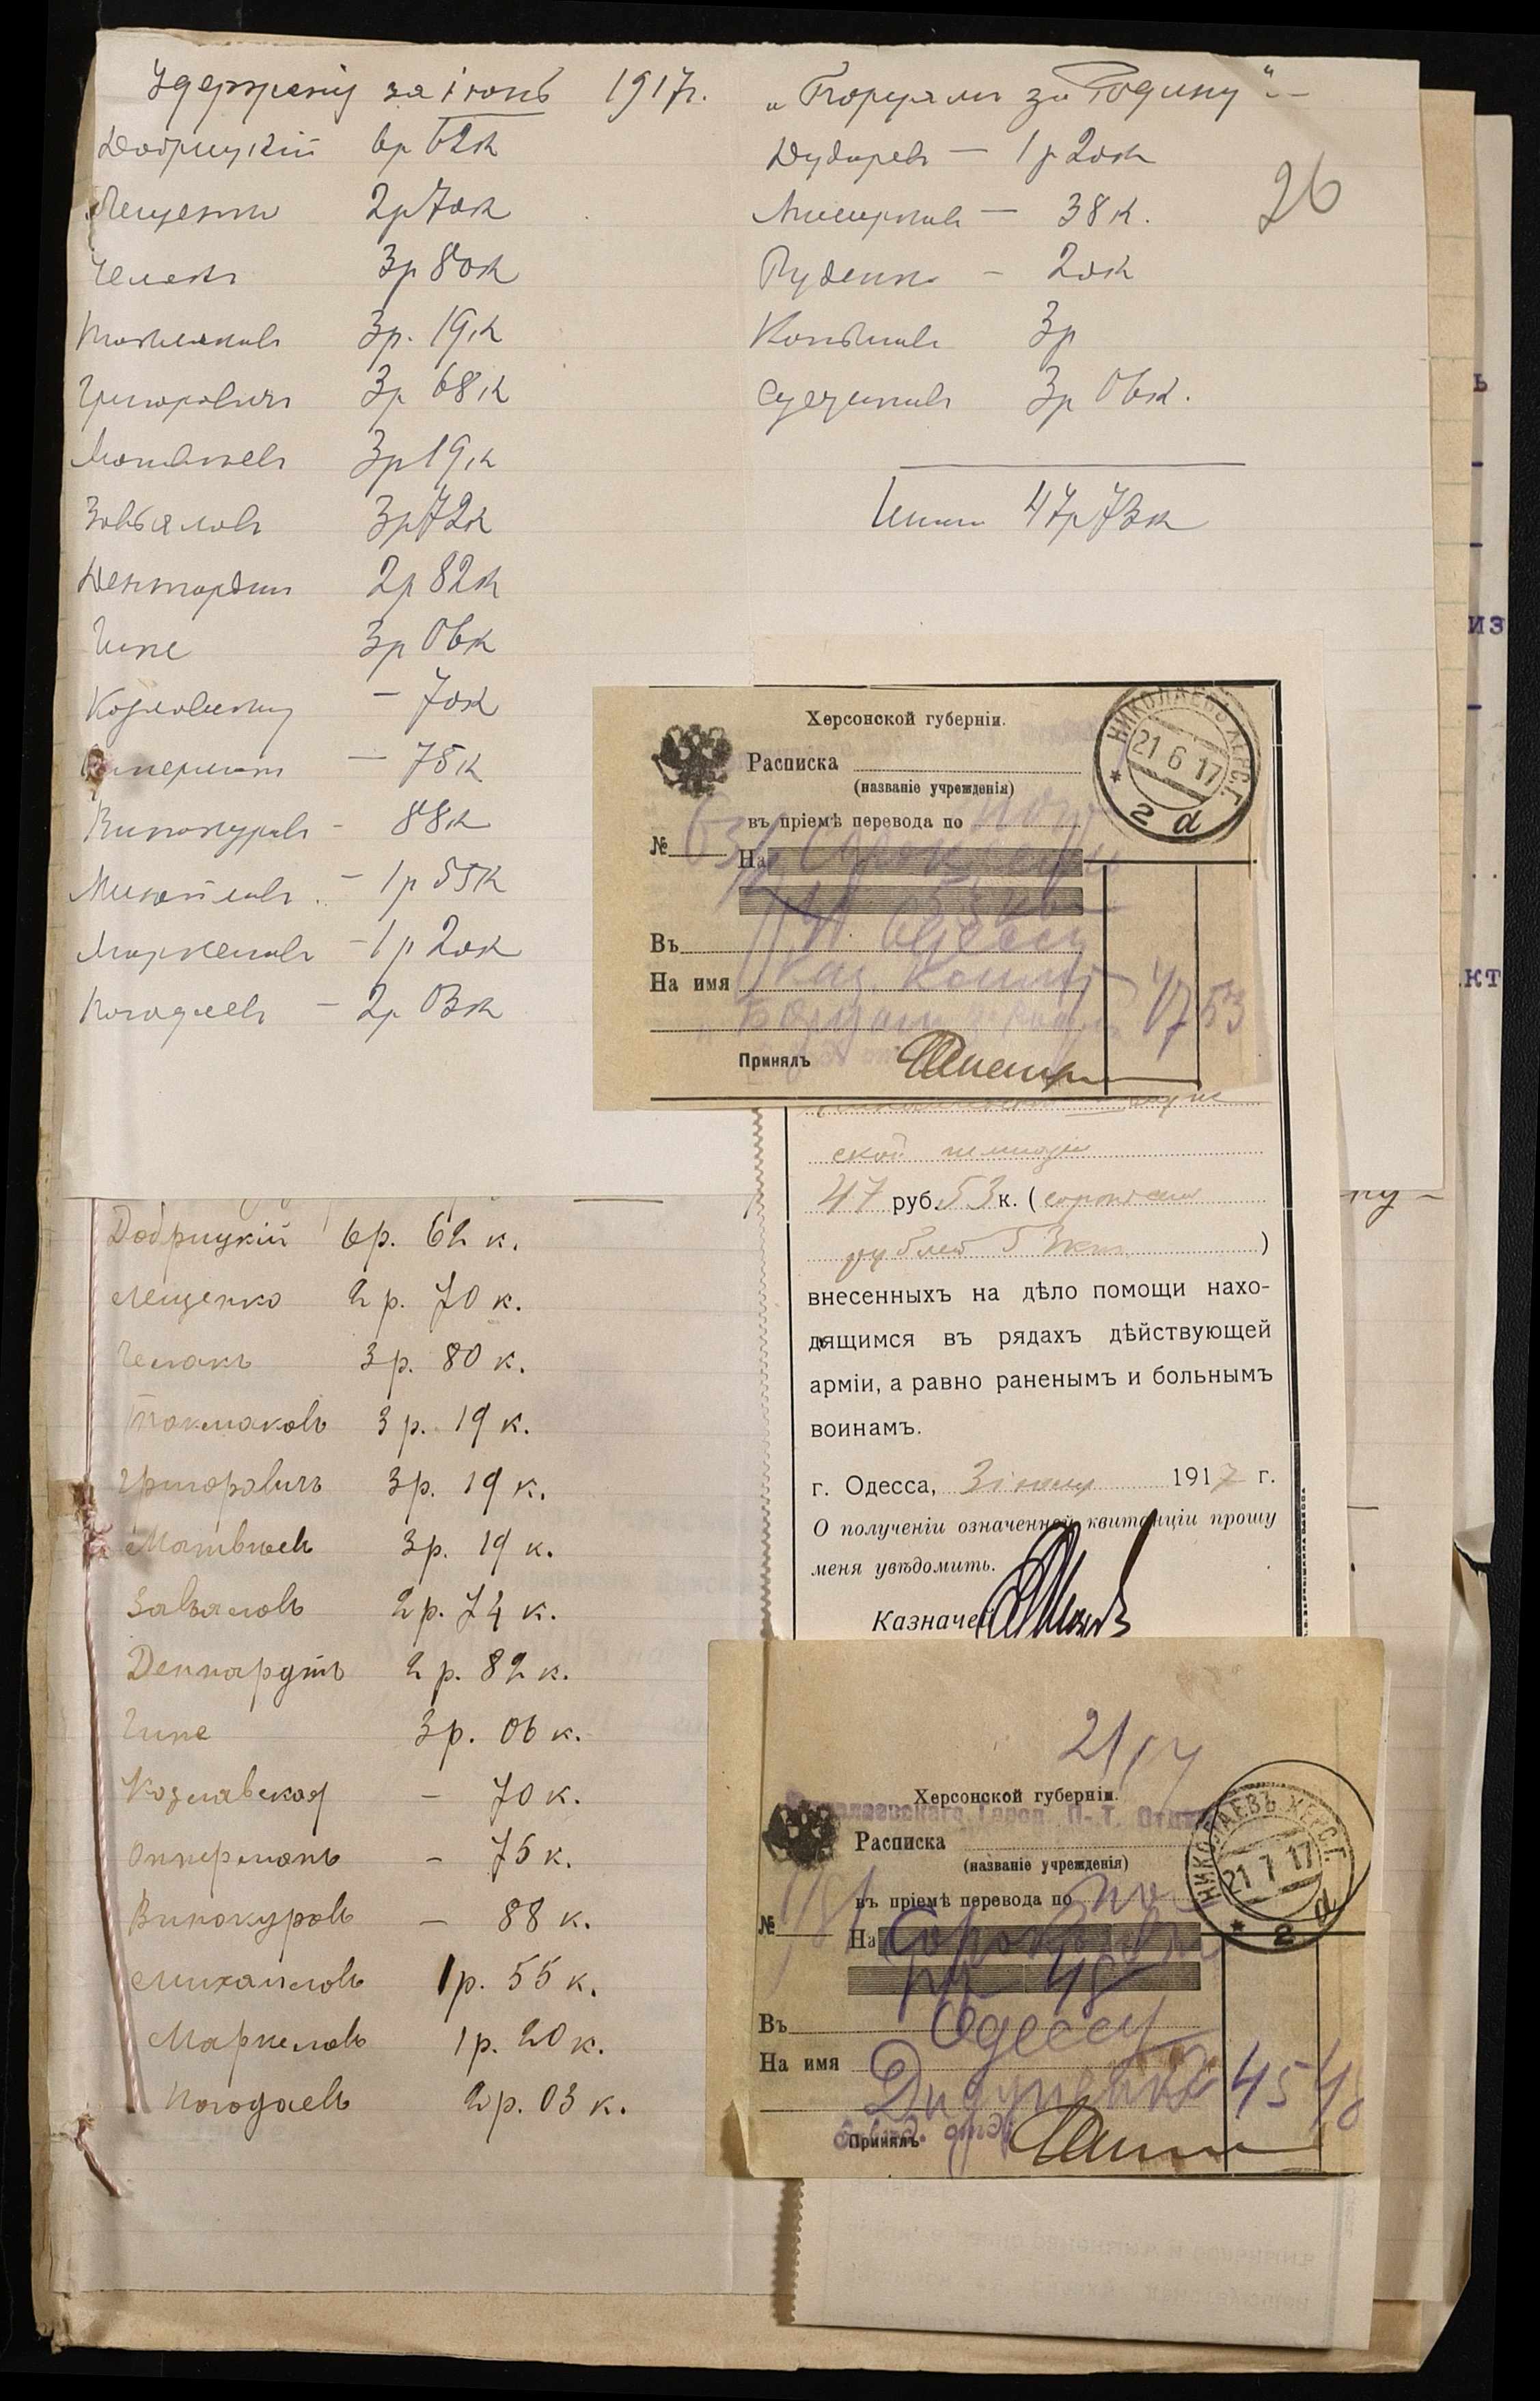 Удержанiя за iюнь 1917г. „Борцам за Родину“
Добрицкiй 6р 62к
Лещенко 2р 70к
Челакъ 3р 80к
Токмаковъ 3р. 19к
Григоровичъ 3р 68к
Матвѣевъ 3р 19к
Завьяловъ 3р 72к
2р 82к
Гипе 3р 06к
– 70к
– 75к
Винокуровъ – 88к
Михайловъ – 1р 55к
Маркеловъ – 1р 20к
Погодаевъ – 2р 03к
Дударевъ – 1р 20к
38к.
Руденко – 20к
3р
3р 06к.
Итого 47р 73к
26
Херсонской губернiи.
Расписка
(названiе учрежденiя)
въ прiемѣ перевода по
№
На
53 коп
Въ Одессу
На имя Каз. Комит
„Борцамъ за Родину
47 53
Принялъ
НИКОЛАЕВЪ ХЕРС. Г.
21 6 17
* 2 d
ской гимназiи
47 руб. 53 к. (сорокъ семь
рублей 53 коп. )
внесенныхъ на дѣло помощи нахо-
дящимся въ рядахъ дѣйствующей
армiи, а равно раненымъ и больнымъ
воинамъ.
г. Одесса, 3 iюля 1917 г.
О полученiи означенной квитанцiи прошу
меня увѣдомить.
Казначей
Добрицкiй 6р. 62 к.
Лещенко 2 р. 70 к.
Челакъ 3 р. 80 к.
Токмаковъ 3 р. 19 к.
Григоровичъ 3р. 19 к.
Матвѣевъ 3р. 19 к.
Завьяловъ 2 р. 74 к.
Деппардтъ 2 р. 82 к.
Гипе 3р. 06 к.
Козлавская – 70 к.
Опперманъ – 75 к.
Винокуровъ – 88 к.
Михаиловъ 1р. 55 к.
Маркеловъ 1р. 20 к.
Погодаевъ 2р. 03 к.
21/7
Херсонской губернiи.
Расписка
(названiе учрежденiя)
въ прiемѣ перевода по
№
На Сорокъ пять
48
Въ Одессу
На имя
45 48
Принялъ
НИКОЛАЕВЪ ХЕРС. Г.
21 7 17
* 2 d
из
кт